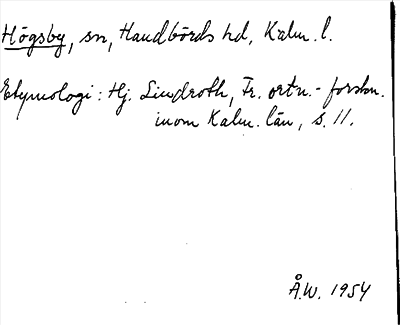 Högsby, sn, Handbörds hd, Kalm. l.
Etymologi: Hj. Lindroth, Fr. ortn.-forskn.
inom Kalm. län, s. 11.
Å.W. 1954